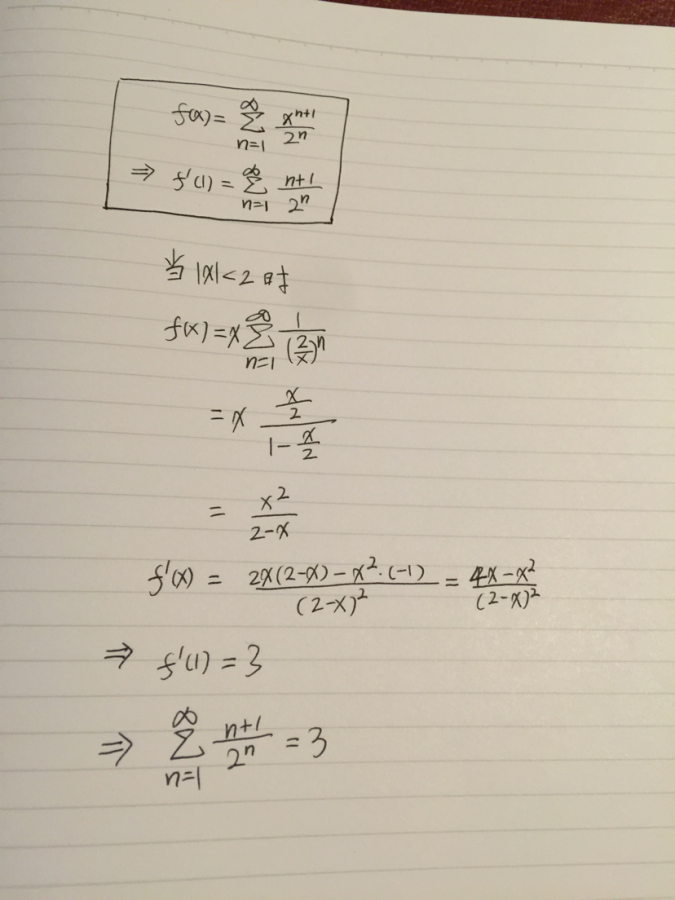 f(x) = ∑_{n=1}^{∞} \frac{x^{n+1}}{2^n}
⇒ f'(1) = ∑_{n=1}^{∞} \frac{n+1}{2^n}
当 |x| < 2 时
f(x) = x ∑_{n=1}^{∞} \frac{1}{(\frac{2}{x})^n}
= x \frac{\frac{x}{2}}{1 - \frac{x}{2}}
= \frac{x^2}{2-x}
f'(x) = \frac{2x(2-x) - x^2·(-1)}{(2-x)^2} = \frac{4x - x^2}{(2-x)^2}
⇒ f'(1) = 3
⇒ ∑_{n=1}^{∞} \frac{n+1}{2^n} = 3